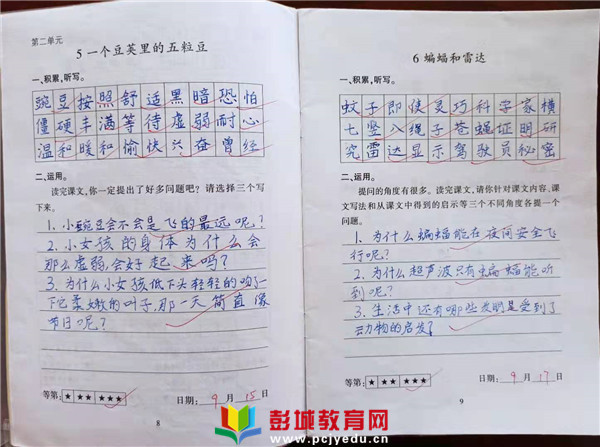 第二单元
5 一个豆荚里的五粒豆
一、积累,听写。
豌豆按照舒适黑暗恐怕
僵硬丰满等待虚弱耐心
温和暖和愉快兴奋曾经
二、运用。
读完课文,你一定提出了好多问题吧?请选择三个写
下来。
1.小豌豆会不会是飞的最远呢?
2.小女孩的身体为什么会
那么虚弱,会好起来吗?
3.为什么小女孩低下头轻轻的吻了一
下它柔嫩的叶子,那一天简直像
节日呢?
等第: ★ ★★ ★★★
日期: 9 月 15 日
8
6 蝙蝠和雷达
一、积累,听写。
蚊子即使灵巧科学家横
七竖八绳子苍蝇证明研
究雷达显示驾驶员秘密
二、运用。
提问的角度有很多。读完课文,请你针对课文内容、课
文写法和从课文中得到的启示等三个不同角度各提一个
问题。
1.为什么蝙蝠能在夜间安全飞
行呢?
2.为什么超声波只有蝙蝠能听
到呢?
3.生活中还有哪些发明是受到了
动物的启发?
等第: ★ ★★ ★★★
日期: 9 月 17 日
9
彭城教育网
www.pcjyedu.cn